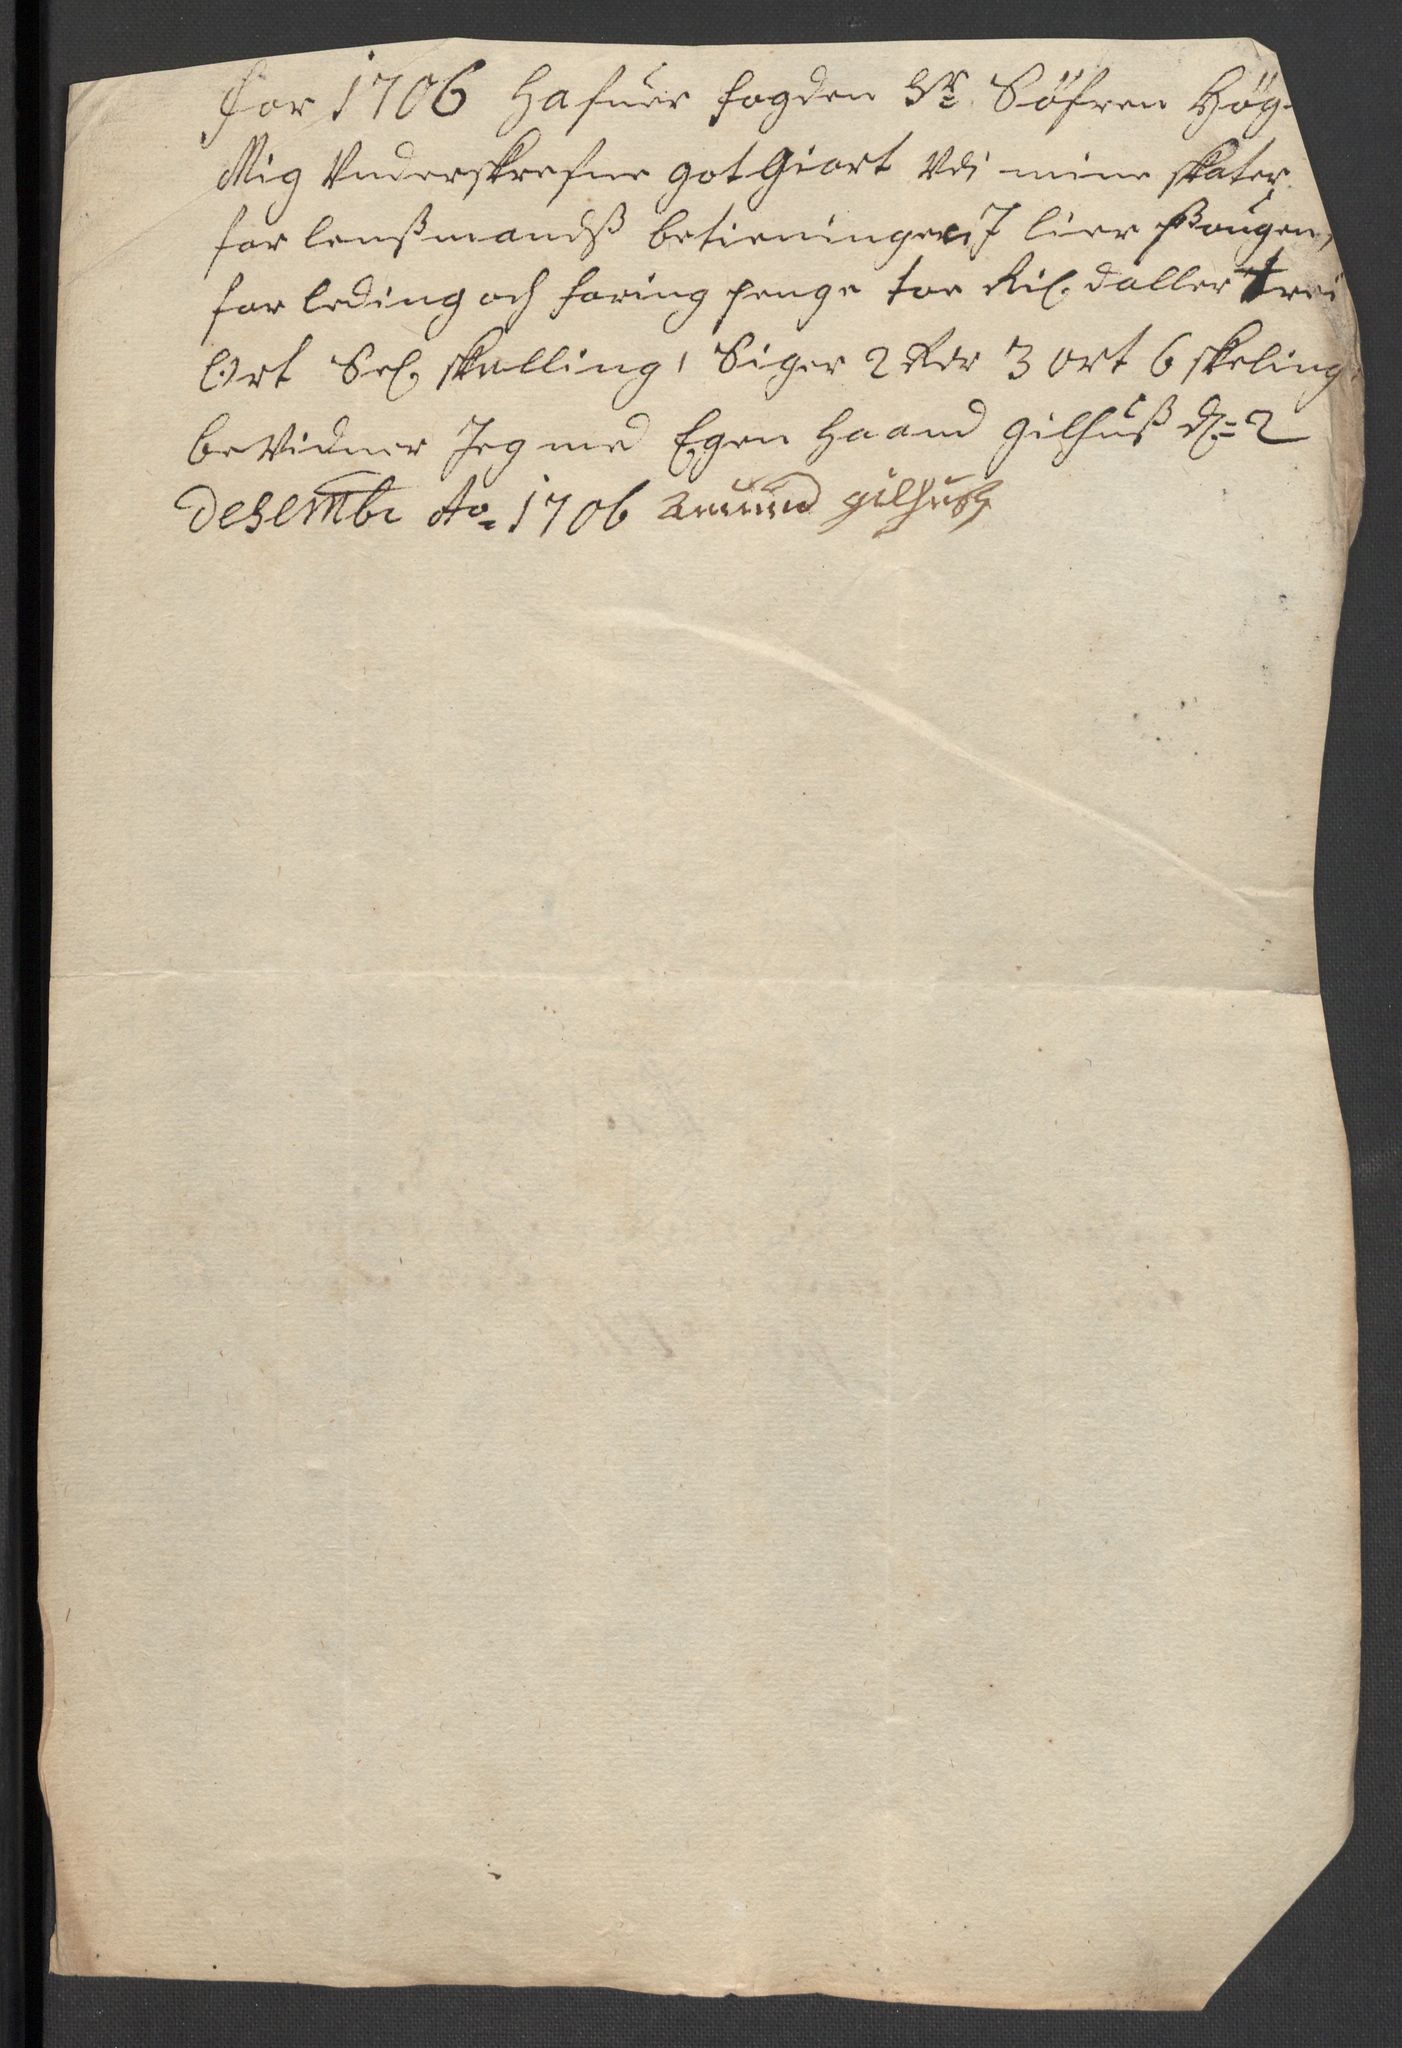 for 1706 Hafuer fogden Sr. Söfren Hög
Mig Underskrefne got Giort Vdi mine skater
for lensmandß betieninger J lier skougen,
for leding och foring penge toe Rix daller trei
Ort Sex skelling, Siger 2 Rdr 3 ort 6 skeling
beVidner Jeg med Egen Haand gilhuß d. 2
Desembr Ao 1706 gilhuß